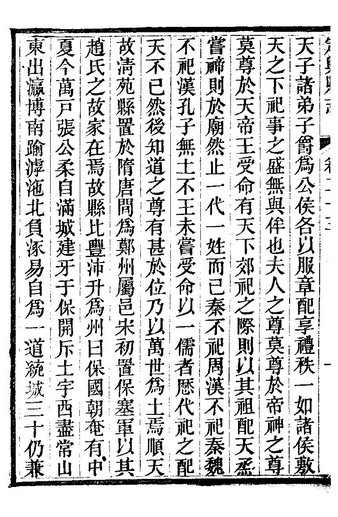 天子諸弟子爵爲公侯各以服章配享禮秩一如諸侯敷
天之下祀事之盛無與侔也夫人之尊莫尊於帝神之尊
莫尊於天帝王受命有天下郊祀之際則以其祖配天烝
嘗禘則於廟然止一代一姓而已秦不祀周漢不祀秦魏
不祀漢孔子無土不王未嘗受命以一儒者歷代祀之配
天不已然後知道之尊有甚於位乃以萬世爲土焉順天
故淸苑縣置於隋唐間爲鄭州屬邑宋初置保塞軍以其
趙氏之故家在焉故縣比豐沛升爲州曰保國朝奄有中
夏今萬戸張公柔自滿城建牙于保開斥土宇西盡常山
東出瀛博南踰滹沲北負涿易自爲一道統城三十仍兼